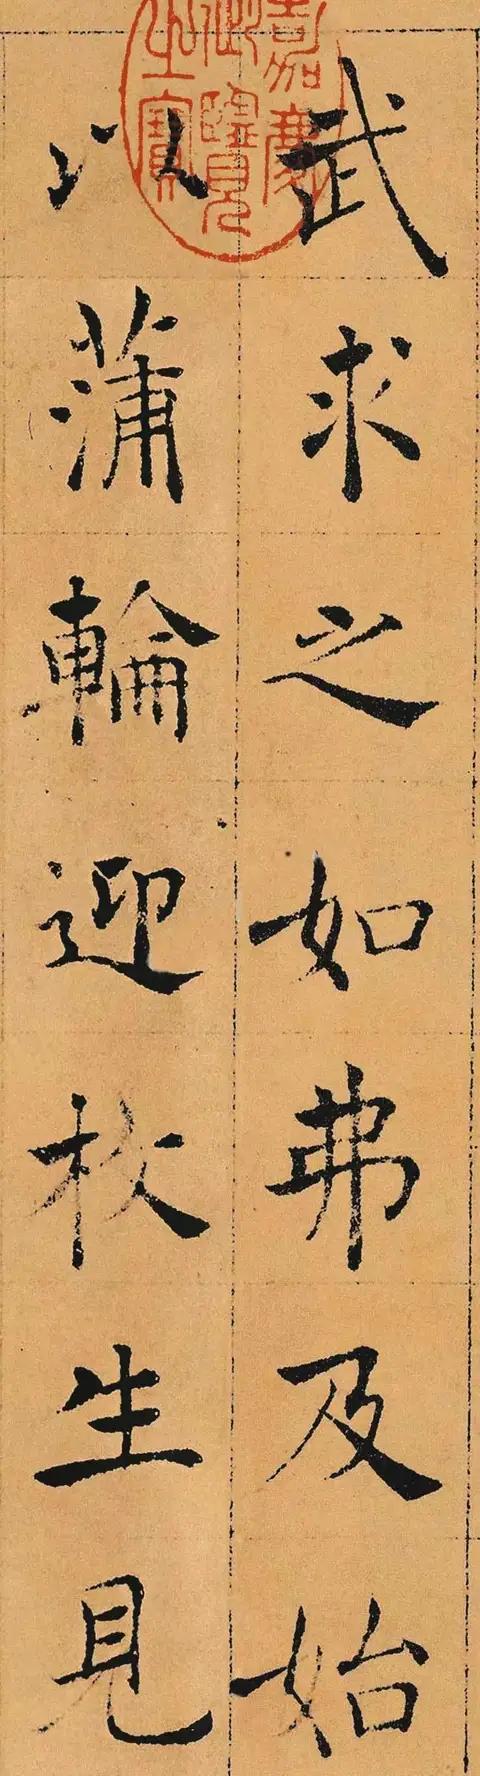 武求之如弗及始
以蒲輪迎枚生見
嘉慶
御覽
之寶